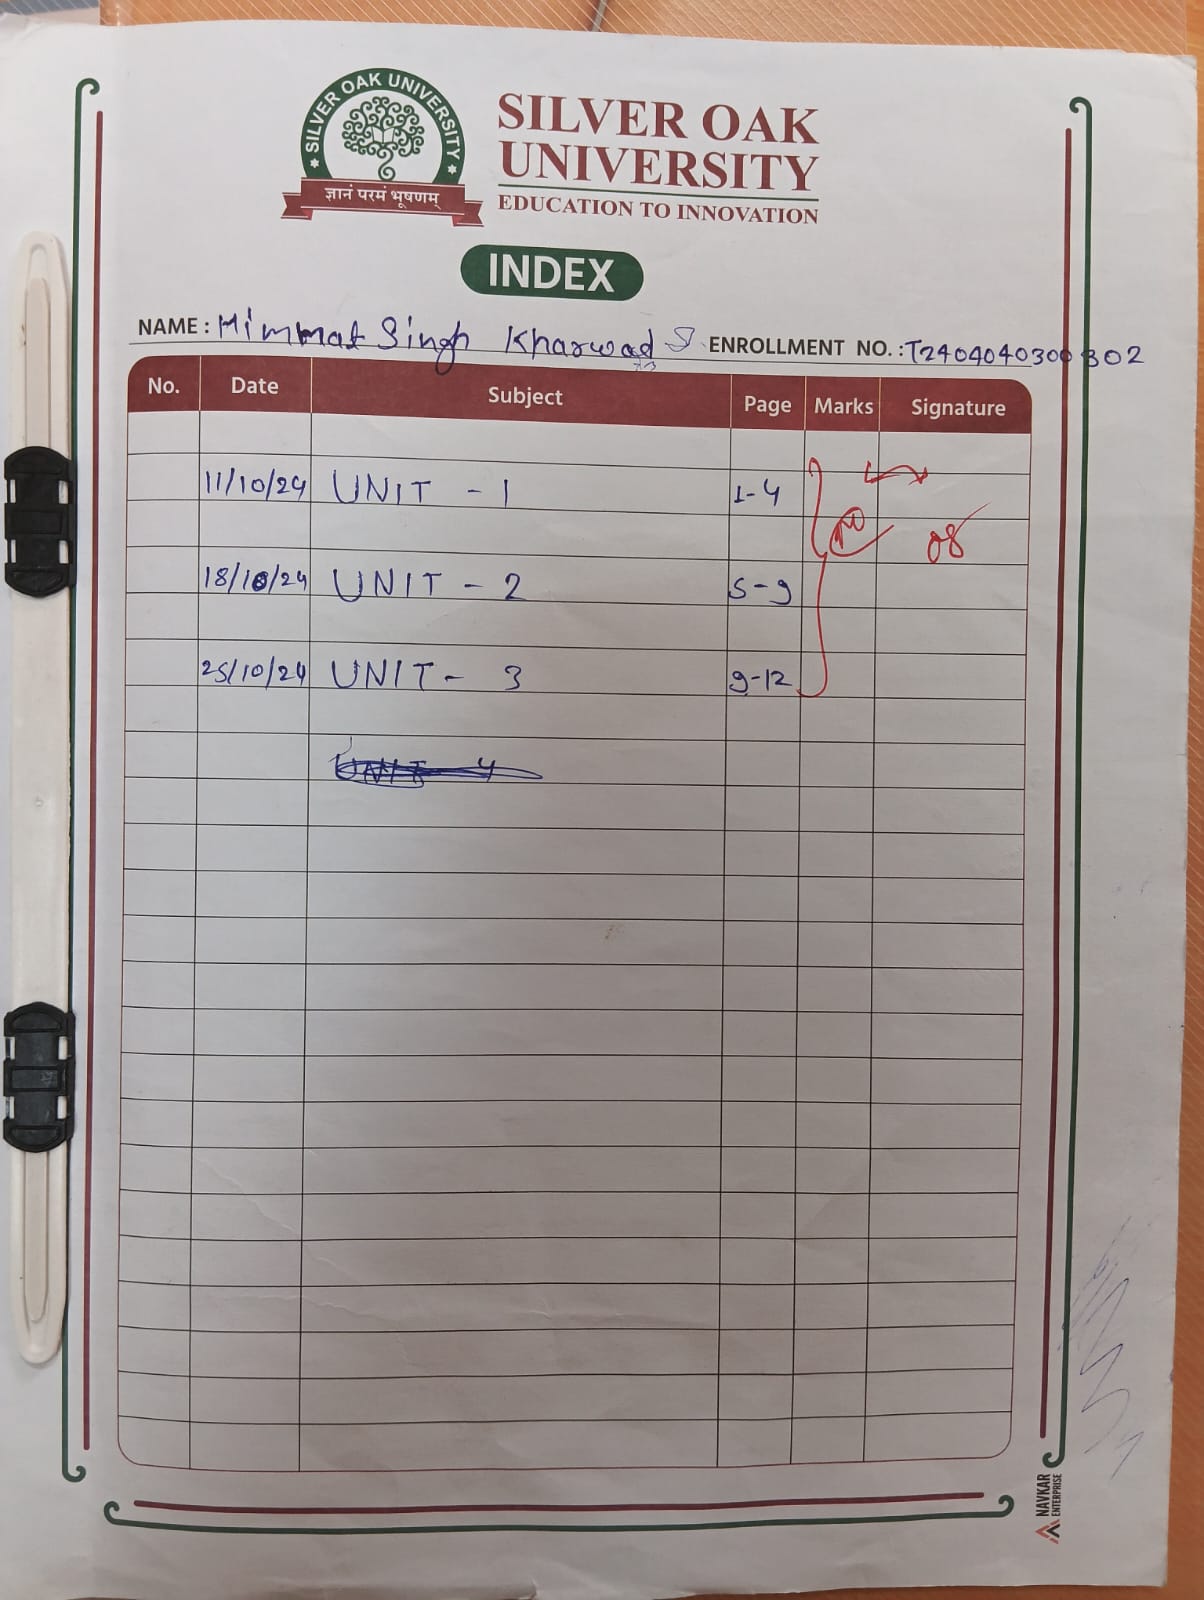 SILVER OAK UNIVERSITY
ज्ञानं परमं भूषणम्
SILVER OAK
UNIVERSITY
EDUCATION TO INNOVATION
INDEX
NAME : Himmat Singh Kharwad S. ENROLLMENT NO. : T2404040300302
No. Date Subject Page Marks Signature
11/10/24 UNIT - 1 1-4
08
18/10/24 UNIT - 2 5-9
25/10/24 UNIT - 3 9-12
UNIT - 4
NAVKAR
ENTERPRISE